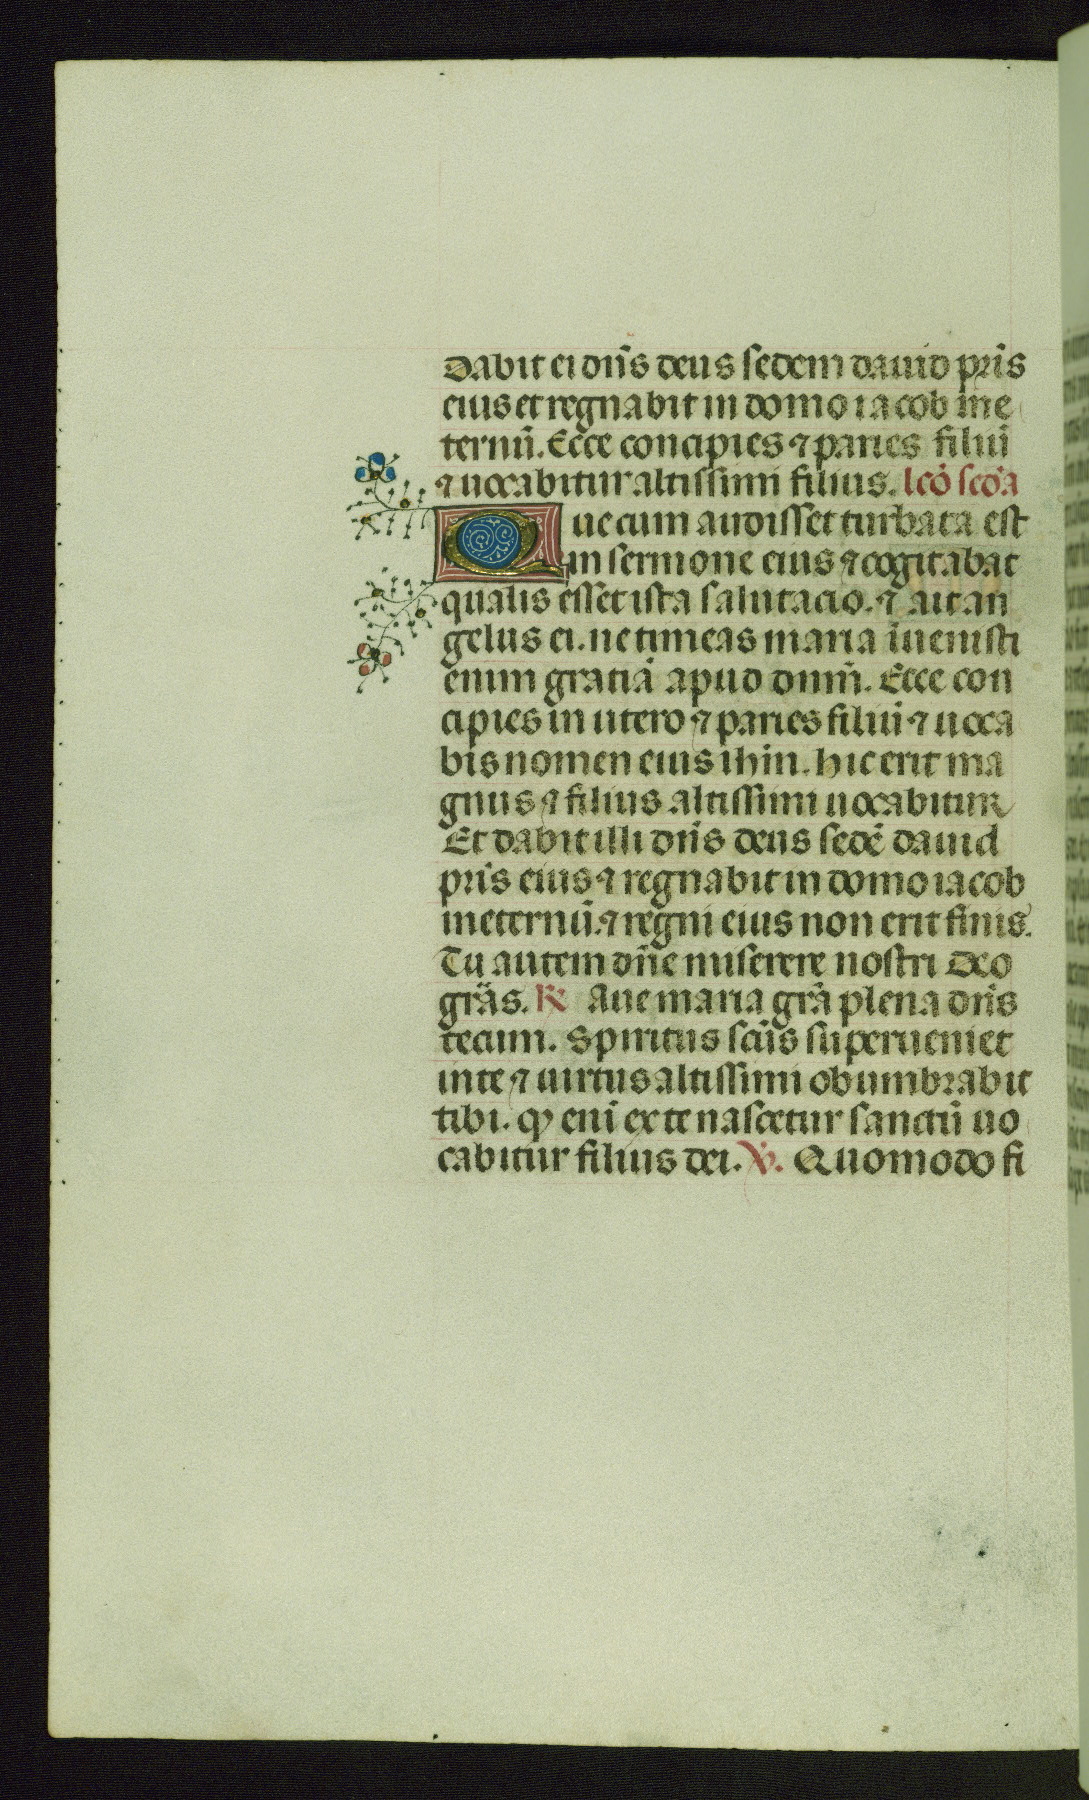 Dabit ei dñs deus sedem dauid pr̃is
eius et regnabit in domo iacob in e
ternũ. Ecce concipies ⁊ paries filiũ
⁊ uocabitur altissimi filius. lcõ scd̃a
Que cum audisset turbata est
in sermone eius ⁊ cogitabat
qualis esset ista salutacio. ⁊ ait an
gelus ei. ne timeas maria ĩuenisti
enim gratiã apud dnm̃. Ecce con
cipies in utero ⁊ paries filiũ ⁊ uoca
bis nomen eius ihm̃. hic erit ma
gnus ⁊ filius altissimi uocabitur
Et dabit illi dñs deus sedẽ dauid
pr̃is eius ⁊ regnabit in domo iacob
in eternũ. ⁊ regni eius non erit finis.
Tu autem dñe miserere nostri Deo
grãs. ℟ Aue maria grã plena dñs
tecum. Spiritus sc̃us superueniet
in te ⁊ uirtus altissimi obumbrabit
tibi. qꝫ enĩ ex te nascetur sanctũ uo
cabitur filius dei. ℣. Quomodo fi